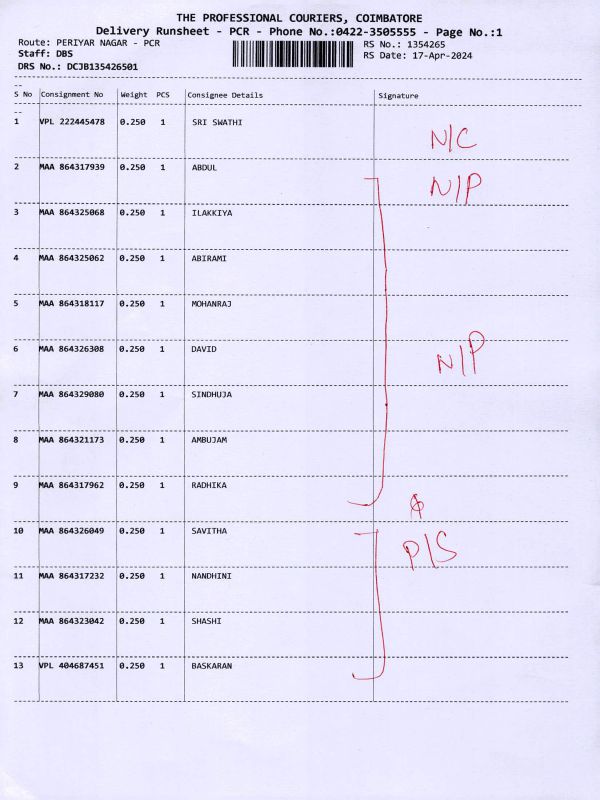 THE PROFESSIONAL COURIERS, COIMBATORE
Delivery Runsheet - PCR - Phone No.:0422-3505555 - Page No.:1
Route: PERIYAR NAGAR - PCR
RS No.: 1354265
Staff: DBS
RS Date: 17-Apr-2024
DRS No.: DCJB135426501
--
S No Consignment No Weight PCS Consignee Details Signature
--
1 VPL 222445478 0.250 1 SRI SWATHI N/C
2 MAA 864317939 0.250 1 ABDUL N/P
3 MAA 864325068 0.250 1 ILAKKIYA
4 MAA 864325062 0.250 1 ABIRAMI
5 MAA 864318117 0.250 1 MOHANRAJ
6 MAA 864326308 0.250 1 DAVID N/P
7 MAA 864329080 0.250 1 SINDHUJA
8 MAA 864321173 0.250 1 AMBUJAM
9 MAA 864317962 0.250 1 RADHIKA
10 MAA 864326049 0.250 1 SAVITHA P/S
11 MAA 864317232 0.250 1 NANDHINI
12 MAA 864323042 0.250 1 SHASHI
13 VPL 404687451 0.250 1 BASKARAN